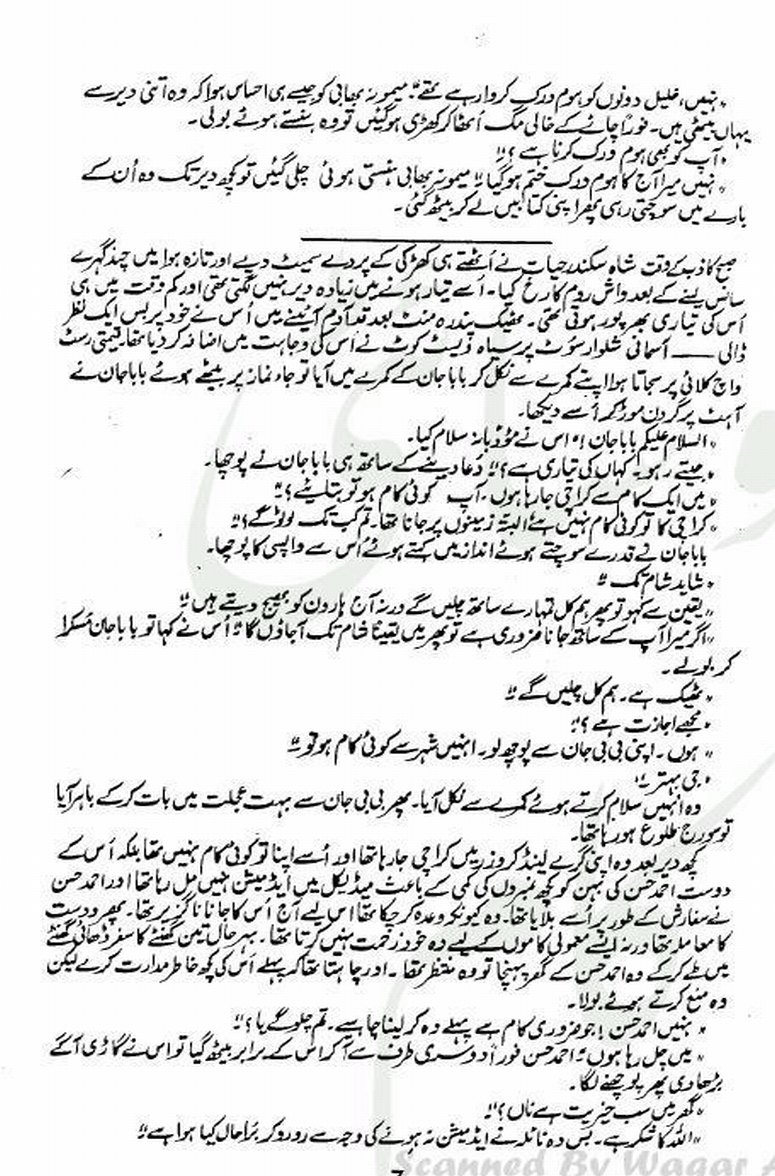 "نہیں، خلیل دونوں کو ہوم ورک کروا رہے تھے" میمونہ بھابی کو جیسے ہی احساس ہوا کہ وہ اتنی دیر سے
یہاں بیٹھی ہیں۔ فوراً چائے کے خالی مگ اُٹھا کر کھڑی ہوگئیں تو وہ ہنستے ہوئے بولی۔
"آپ کو بھی ہوم ورک کرنا ہے؟"
"نہیں میرا آج کا ہوم ورک ختم ہوگیا" میمونہ بھابی ہنستی ہوئی چلی گئیں تو کچھ دیر تک وہ اُن کے
بارے میں سوچتی رہی پھر اپنی کتابیں لے کر بیٹھ گئی۔
صبح کاذب کے وقت شاہ سکندر حیات نے اُٹھتے ہی کھڑکی کے پردے سمیٹ دیے اور تازہ ہوا میں چند گہرے
سانس لینے کے بعد واش روم کا رخ کیا۔ اُسے تیار ہونے میں زیادہ دیر نہیں لگتی تھی اور کم وقت میں ہی
اُس کی تیاری بھرپور ہوتی تھی۔ ٹھیک پندرہ منٹ بعد قد آدم آئینے میں اُس نے خود پر بس ایک نظر
ڈالی —— آسمانی شلوار سوٹ پر سیاہ ویسٹ کوٹ نے اُس کی وجاہت میں اضافہ کر دیا تھا، قیمتی رسٹ
واچ کلائی پر سجاتا ہوا اپنے کمرے سے نکل کر بابا جان کے کمرے میں آیا تو جاء نماز پر بیٹھے ہوئے بابا جان نے
آہٹ پر گردن موڑ کر اُسے دیکھا۔
"السلام علیکم بابا جان!" اس نے مؤدبانہ سلام کیا۔
"جیتے رہو۔ کہاں کی تیاری ہے؟" دُعا دینے کے ساتھ ہی بابا جان نے پوچھا۔
"میں ایک کام سے کراچی جا رہا ہوں۔ آپ کوئی کام ہو تو بتایئے؟"
"کراچی کا تو کوئی کام نہیں ہے البتہ زمینوں پر جانا تھا۔ تم کب تک لوٹو گے؟"
بابا جان نے قدرے سوچتے ہوئے انداز میں کہتے ہوئے اُس سے واپسی کا پوچھا۔
"شاید شام تک"
"یقین سے کہو تو پھر ہم کل تمہارے ساتھ چلیں گے ورنہ آج ہارون کو بھیج دیتے ہیں"
"اگر میرا آپ کے ساتھ جانا ضروری ہے تو پھر میں یقیناً شام تک آجاؤں گا" اُس نے کہا تو بابا جان مُسکرا
کر بولے۔
"ٹھیک ہے۔ ہم کل چلیں گے"
"مجھے اجازت ہے؟"
"ہوں۔ اپنی بی بی جان سے پوچھ لو۔ انہیں شہر سے کوئی کام ہو تو"
"جی بہتر"
وہ اُنہیں سلام کرتے ہوئے کمرے سے نکل آیا۔ پھر بی بی جان سے بہت عجلت میں بات کر کے باہر آیا
تو سورج طلوع ہو رہا تھا۔
کچھ دیر بعد وہ اپنی گرے لینڈ کروزر میں کراچی جا رہا تھا اور اُسے اپنا تو کوئی کام نہیں تھا بلکہ اُس کے
دوست احمد حسن کی بہن کو کچھ نمبروں کی کمی کے باعث میڈیکل میں ایڈمیشن نہیں مل رہا تھا اور احمد حسن
نے سفارش کے طور پر اُسے بلایا تھا۔ وہ کیونکہ وعدہ کر چکا تھا اس لیے آج اُس کا جانا ناگزیر تھا۔ پھر دوست
کا معاملہ تھا ورنہ ایسے معمولی کاموں کے لیے وہ خود زحمت نہیں کرتا تھا۔ بہر حال تین گھنٹے کا سفر ڈھائی گھنٹے
میں طے کر کے وہ احمد حسن کے گھر پہنچا تو وہ منتظر تھا۔ اور چاہتا تھا کہ پہلے اُس کی کچھ خاطر مدارت کرے لیکن
وہ منع کرتے ہوئے بولا۔
"نہیں احمد حسن! جو ضروری کام ہے پہلے وہ کر لینا چاہیے۔ تم چلو گے یا؟"
"میں چل رہا ہوں" احمد حسن فوراً دوسری طرف سے آکر اس کے برابر بیٹھ گیا تو اس نے گاڑی آگے
بڑھا دی پھر پوچھنے لگا۔
"گھر میں سب خیریت ہے ناں؟"
"اللہ کا شکر ہے۔ بس وہ نائلہ نے ایڈمیشن نہ ہونے کی وجہ سے رو رو کر بُرا حال کیا ہوا ہے"
Scanned By Waqar